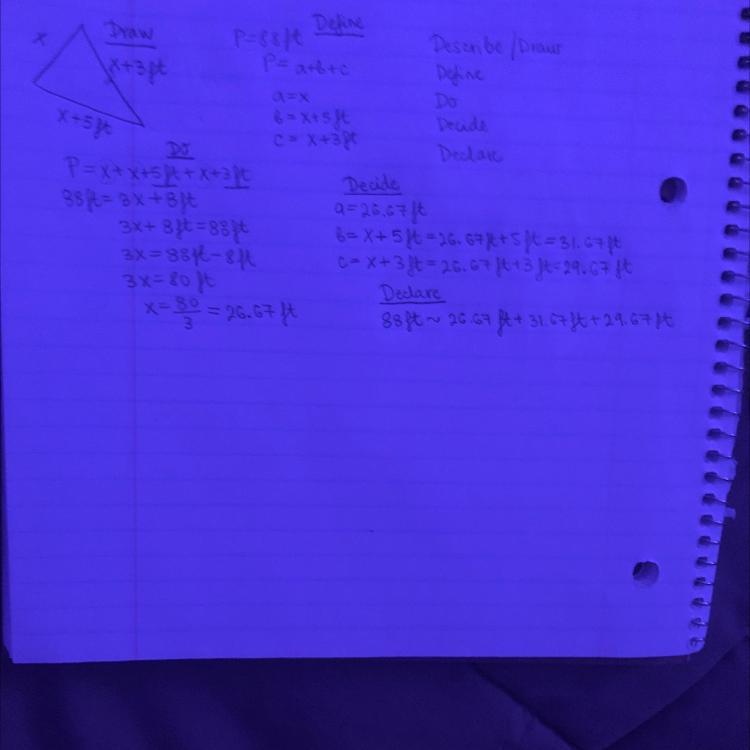 Draw
x
x+3ft
x+5ft
Define
P=88ft
P= a+b+c
a=x
b=x+5ft
c= x+3ft
Describe/Draw
Define
Do
Decide
Declare
Do
P=x+x+5ft+x+3ft
88ft=3x+8ft
3x+8ft=88ft
3x=88ft-8ft
3x=80ft
x=80/3=26.67ft
Decide
a=26.67ft
b=x+5ft=26.67ft+5ft=31.67ft
c=x+3ft=26.67ft+3ft=29.67ft
Declare
88ft~26.67ft+31.67ft+29.67ft